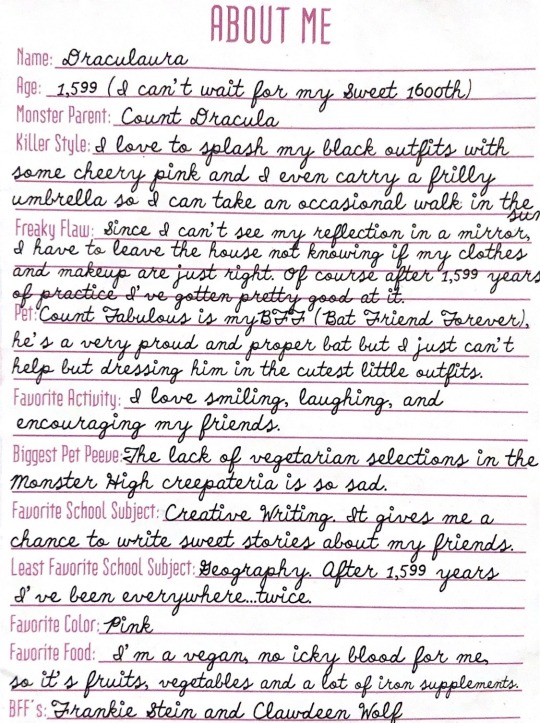 ABOUT ME
Name: Draculaura
Age: 1,599 (I can't wait for my Sweet 1600th)
Monster Parent: Count Dracula
Killer Style: I love to splash my black outfits with
some cheery pink and I even carry a frilly
umbrella so I can take an occasional walk in the
sun
Freaky Flaw: Since I can't see my reflection in a mirror,
I have to leave the house not knowing if my clothes
and makeup are just right. Of course after 1,599 years
of practice I've gotten pretty good at it.
Pet: Count Fabulous is my BFF (Bat Friend Forever),
he's a very proud and proper bat but I just can't
help but dressing him in the cutest little outfits.
Favorite Activity: I love smiling, laughing, and
encouraging my friends.
Biggest Pet Peeve: The lack of vegetarian selections in the
Monster High creepateria is so sad.
Favorite School Subject: Creative Writing. It gives me a
chance to write sweet stories about my friends.
Least Favorite School Subject: Geography. After 1,599 years
I've been everywhere...twice.
Favorite Color: Pink
Favorite Food: I'm a vegan, no icky blood for me,
so it's fruits, vegetables and a lot of iron supplements.
BFF's: Frankie Stein and Clawdeen Wolf